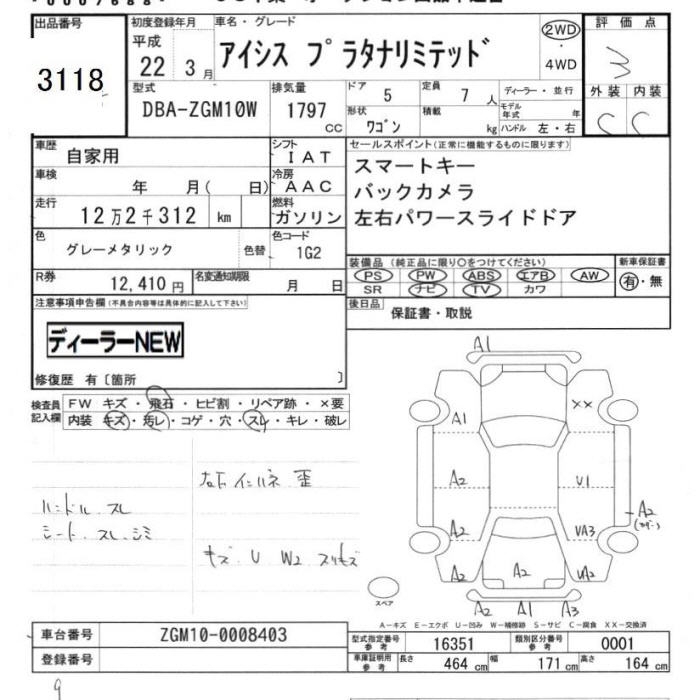 出品番号
3118
初度登録年月
平成
22 3月
車名・グレード
アイシス プラタナリミテッド
2WD
・
4WD
評価点
3
外装 内装
C C
型式
DBA-ZGM10W
排気量
1797
cc
ドア
5
定員
7 人
形状
ワゴン
積載
kg
ディーラー・並行
モデル年式 年
ハンドル 左・右
車歴
自家用
車検
年 月( 日)
走行
12万2千312 km
色
グレーメタリック
色替
R券
12,410円
シフト
IAT
冷房
AAC
燃料
ガソリン
色コード
1G2
名変通知期限
月 日
セールスポイント(正常に機能するものに限ります)
スマートキー
バックカメラ
左右パワースライドドア
装備品(純正品に限り○をつけてください)
PS PW ABS エアB AW
SR ナビ TV カワ
新車保証書
有・無
後日品
保証書・取説
注意事項申告欄(不具合内容等は具体的に記入して下さい)
ディーラーNEW
修復歴 有〔箇所 〕
検査員記入欄
FW キズ・飛石・ヒビ割・リペア跡・×要
内装 キズ・汚レ・コゲ・穴・スレ・キレ・破レ
ハンドル スレ
シート・スレ・シミ
キズ U W2 スリキズ
A1
A1
XX
A2
U1
A2
A2
UA3
A2
A2
UA2
A2 A1 A3
スペア
A-キズ E-エクボ U-凹み W-補修跡 S-サビ C-腐食 XX-交換済
車台番号
ZGM10-0008403
登録番号
型式指定番号
参考
16351
類別区分番号
参考
0001
車庫証明用
参考
長さ
464 cm
幅
171 cm
高さ
164 cm
9